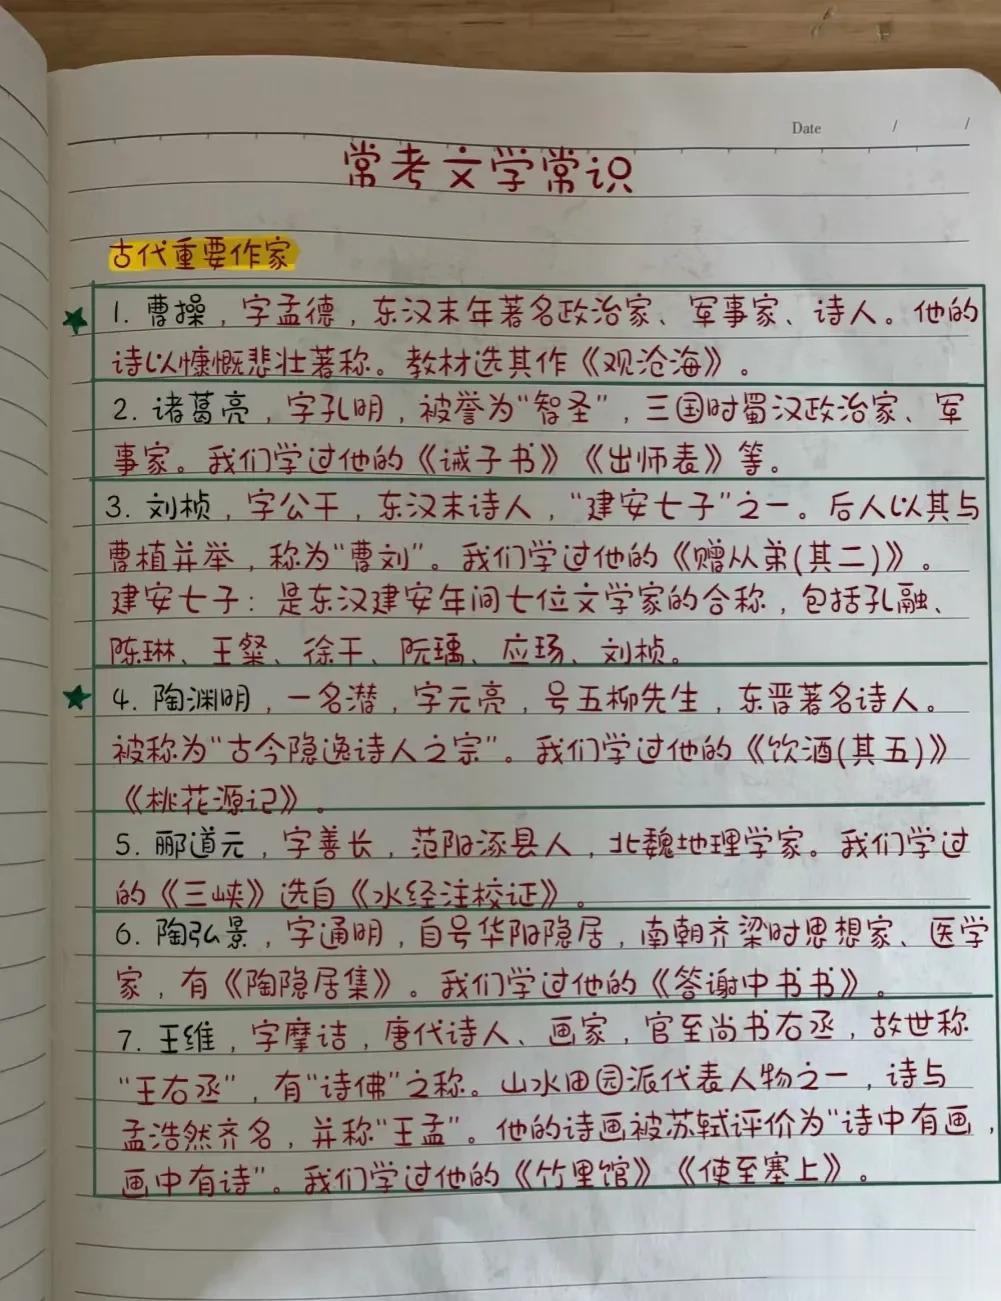 Date / /
常考文学常识
古代重要作家
★ 1. 曹操，字孟德，东汉末年著名政治家、军事家、诗人。他的
诗以慷慨悲壮著称。教材选其作《观沧海》。
2. 诸葛亮，字孔明，被誉为“智圣”，三国时蜀汉政治家、军
事家。我们学过他的《诫子书》《出师表》等。
3. 刘桢，字公干，东汉末诗人，“建安七子”之一。后人以其与
曹植并举，称为“曹刘”。我们学过他的《赠从弟(其二)》。
建安七子：是东汉建安年间七位文学家的合称，包括孔融、
陈琳、王粲、徐干、阮瑀、应玚、刘桢。
★ 4. 陶渊明，一名潜，字元亮，号五柳先生，东晋著名诗人。
被称为“古今隐逸诗人之宗”。我们学过他的《饮酒(其五)》
《桃花源记》。
5. 郦道元，字善长，范阳涿县人，北魏地理学家。我们学过
的《三峡》选自《水经注校证》。
6. 陶弘景，字通明，自号华阳隐居，南朝齐梁时思想家、医学
家，有《陶隐居集》。我们学过他的《答谢中书书》。
7. 王维，字摩诘，唐代诗人、画家，官至尚书右丞，故世称
“王右丞”，有“诗佛”之称。山水田园派代表人物之一，诗与
孟浩然齐名，并称“王孟”。他的诗画被苏轼评价为“诗中有画，
画中有诗”。我们学过他的《竹里馆》《使至塞上》。